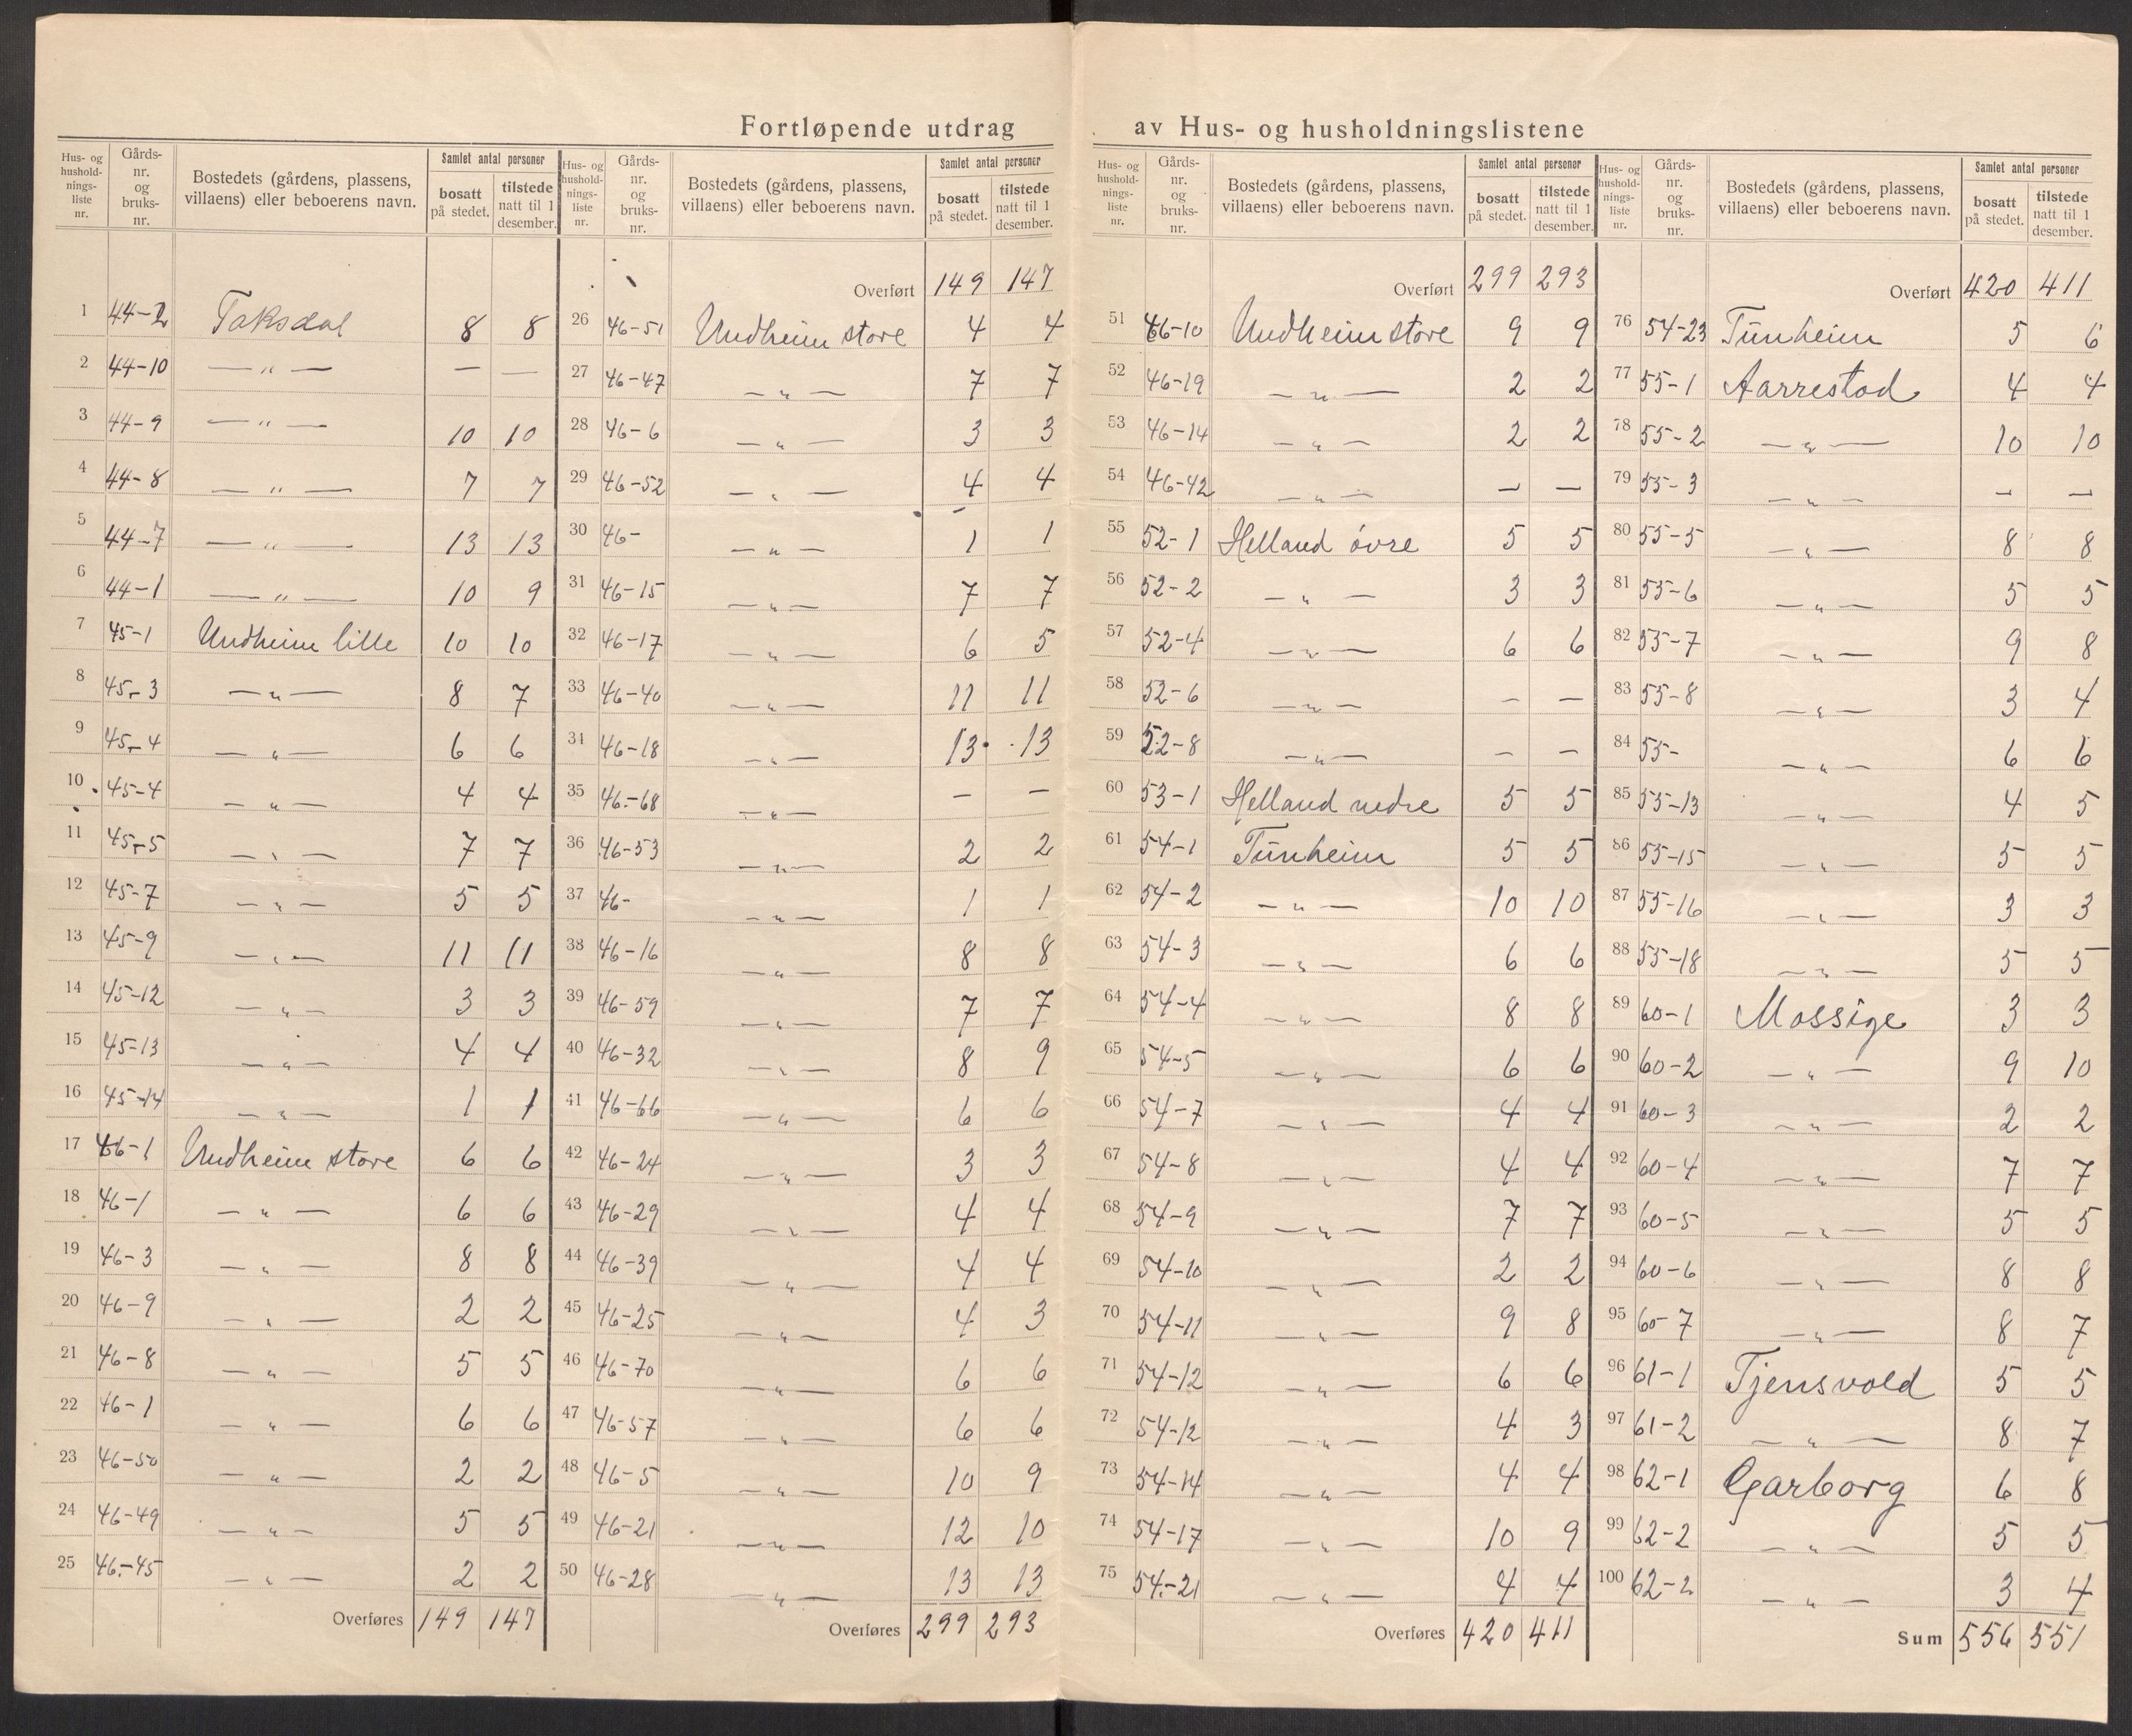 Fortløpende utdrag av Hus- og husholdningslistene
Hus- og husholdningsliste nr. | Gårdsnr. og bruksnr. | Bostedets (gårdens, plassens, villaens) eller beboerens navn. | Samlet antal personer | bosatt på stedet. | tilstede natt til 1 desember.
1 44-2 Taksdal 8 8
2 44-10 —"— — —
3 44-9 —"— 10 10
4 44-8 —"— 7 7
5 44-7 —"— 13 13
6 44-1 —"— 10 9
7 45-1 Undheim lille 10 10
8 45-3 —"— 8 7
9 45-4 —"— 6 6
10 45-4 —"— 4 4
11 45-5 —"— 7 7
12 45-7 —"— 5 5
13 45-9 —"— 11 11
14 45-12 —"— 3 3
15 45-13 —"— 4 4
16 45-14 —"— 1 1
17 46-1 Undheim store 6 6
18 46-1 —"— 6 6
19 46-3 —"— 8 8
20 46-9 —"— 2 2
21 46-8 —"— 5 5
22 46-1 —"— 6 6
23 46-50 —"— 2 2
24 46-49 —"— 5 5
25 46-45 —"— 2 2
Overføres 149 147
Hus- og husholdningsliste nr. | Gårdsnr. og bruksnr. | Bostedets (gårdens, plassens, villaens) eller beboerens navn. | Samlet antal personer | bosatt på stedet. | tilstede natt til 1 desember.
Overført 149 147
26 46-51 Undheim store 4 4
27 46-47 —"— 7 7
28 46-6 —"— 3 3
29 46-52 —"— 4 4
30 46- —"— 1 1
31 46-15 —"— 7 7
32 46-17 —"— 6 5
33 46-40 —"— 11 11
34 46-18 —"— 13 13
35 46-68 —"— — —
36 46-53 —"— 2 2
37 46- —"— 1 1
38 46-16 —"— 8 8
39 46-59 —"— 7 7
40 46-32 —"— 8 9
41 46-66 —"— 6 6
42 46-24 —"— 3 3
43 46-29 —"— 4 4
44 46-39 —"— 4 4
45 46-25 —"— 4 3
46 46-70 —"— 6 6
47 46-57 —"— 6 6
48 46-5 —"— 10 9
49 46-21 —"— 12 10
50 46-28 —"— 13 13
Overføres 299 293
Hus- og husholdningsliste nr. | Gårdsnr. og bruksnr. | Bostedets (gårdens, plassens, villaens) eller beboerens navn. | Samlet antal personer | bosatt på stedet. | tilstede natt til 1 desember.
Overført 299 293
51 46-10 Undheim store 9 9
52 46-19 —"— 2 2
53 46-14 —"— 2 2
54 46-42 —"— — —
55 52-1 Helland övre 5 5
56 52-2 —"— 3 3
57 52-4 —"— 6 6
58 52-6 —"— — —
59 52-8 —"— — —
60 53-1 Helland nedre 5 5
61 54-1 Tunheim 5 5
62 54-2 —"— 10 10
63 54-3 —"— 6 6
64 54-4 —"— 8 8
65 54-5 —"— 6 6
66 54-7 —"— 4 4
67 54-8 —"— 4 4
68 54-9 —"— 7 7
69 54-10 —"— 2 2
70 54-11 —"— 9 8
71 54-12 —"— 6 6
72 54-12 —"— 4 3
73 54-14 —"— 4 4
74 54-17 —"— 10 9
75 54-21 —"— 4 4
Overføres 420 411
Hus- og husholdningsliste nr. | Gårdsnr. og bruksnr. | Bostedets (gårdens, plassens, villaens) eller beboerens navn. | Samlet antal personer | bosatt på stedet. | tilstede natt til 1 desember.
Overført 420 411
76 54-23 Tunheim 5 6
77 55-1 Aarrestad 4 4
78 55-2 —"— 10 10
79 55-3 —"— — —
80 55-5 —"— 8 8
81 55-6 —"— 5 5
82 55-7 —"— 9 8
83 55-8 —"— 3 4
84 55- —"— 6 6
85 55-13 —"— 4 5
86 55-15 —"— 5 5
87 55-16 —"— 3 3
88 55-18 —"— 5 5
89 60-1 Mossige 3 3
90 60-2 —"— 9 10
91 60-3 —"— 2 2
92 60-4 —"— 7 7
93 60-5 —"— 5 5
94 60-6 —"— 8 8
95 60-7 —"— 8 7
96 61-1 Tjensvold 5 5
97 61-2 —"— 8 7
98 62-1 Garborg 6 8
99 62-2 —"— 5 5
100 62-2 —"— 3 4
Sum 556 551